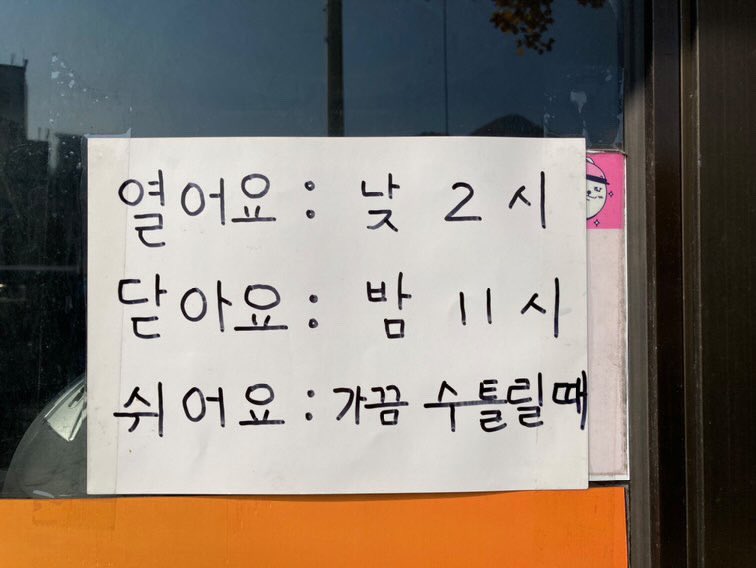 열어요: 낮 2시
닫아요: 밤 11시
쉬어요: 가끔 수틀릴때